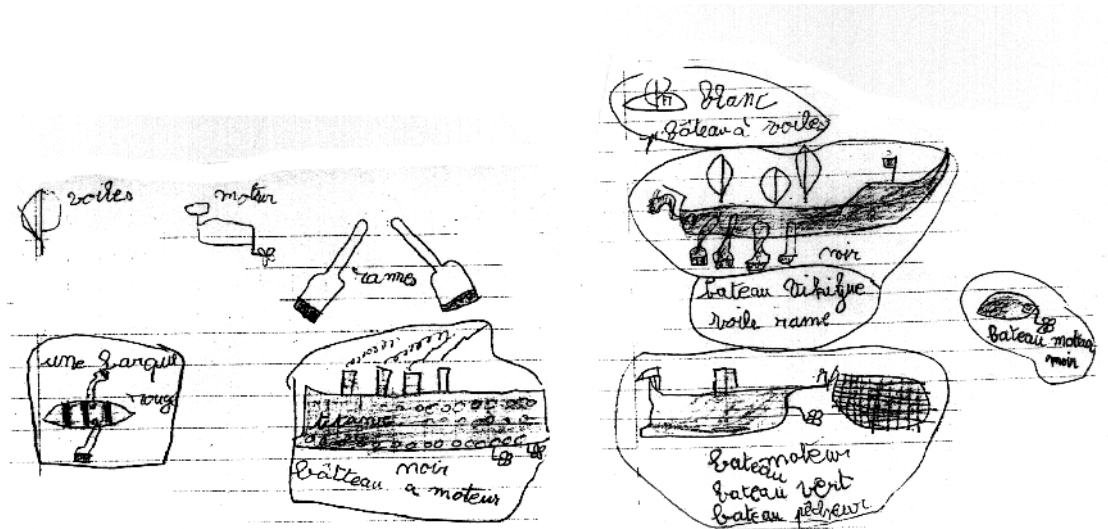 voiles
moteur
rames
une barque
rouge
titanic
noir
bâtteau a moteur
blanc
bâteau à voiles
noir
bateau vikigue
voile rame
bateau moteur
noir
bateau moteur
bateau vert
bateau pêcheur